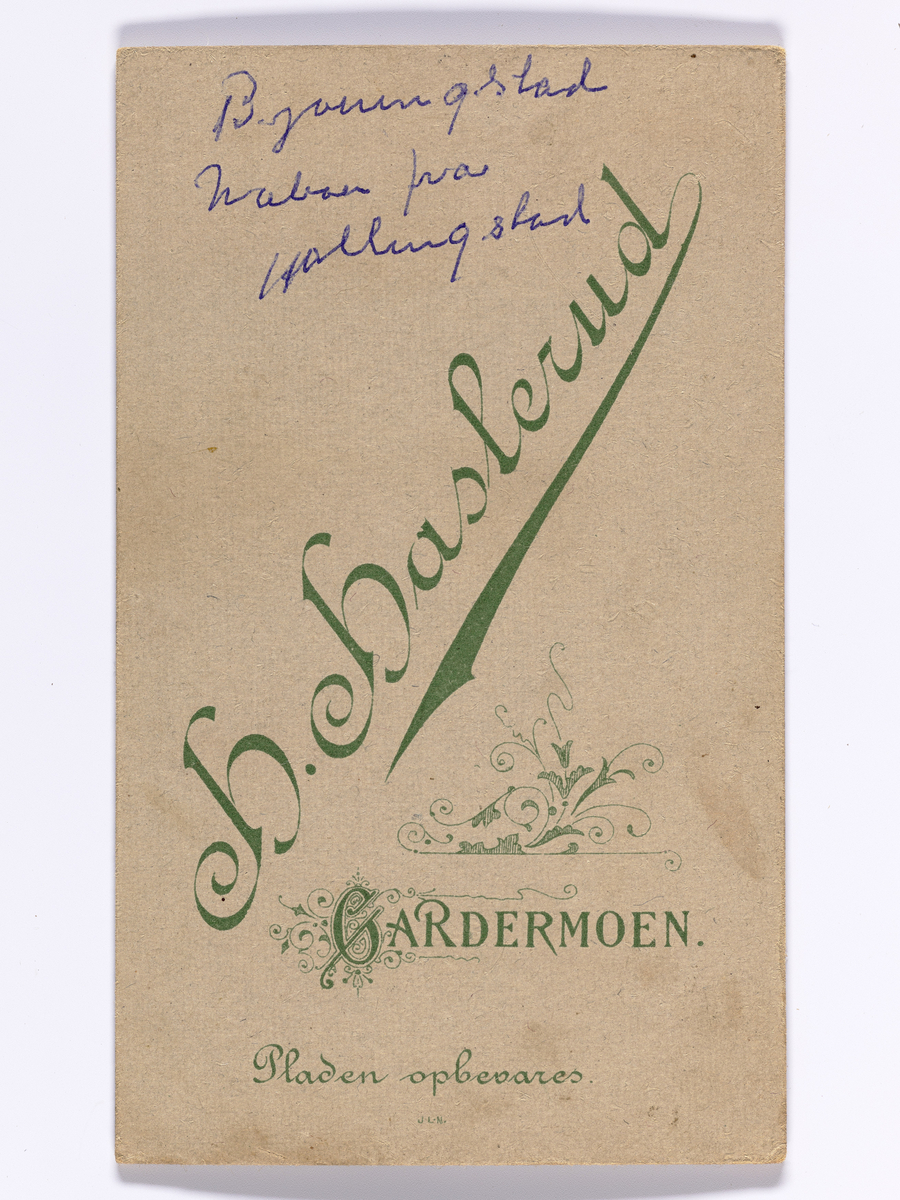 Bjonungstad
Naboer fra
Hollingstad
H. Haslerud
GARDERMOEN.
Pladen opbevares.
J.L.N.